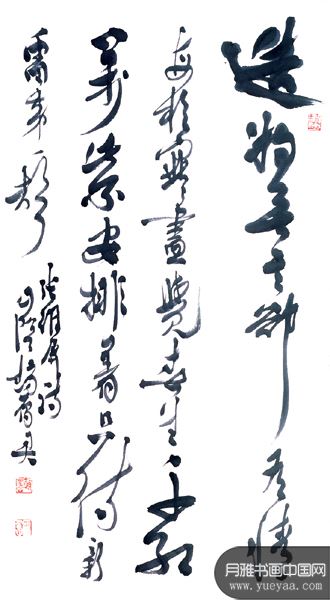 造物无言卻有情
每於寒盡覺春生千紅
萬紫安排着只待新
雷第一聲
张維屏诗
月雅书画中国网
www.yueyaa.com